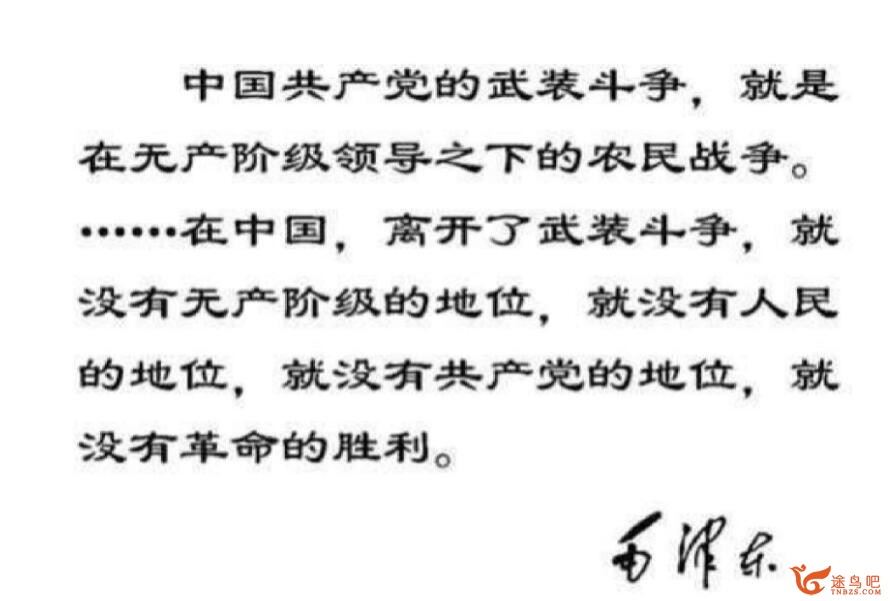 中国共产党的武装斗争，就是
在无产阶级领导之下的农民战争。
……在中国，离开了武装斗争，就
没有无产阶级的地位，就没有人民
的地位，就没有共产党的地位，就
没有革命的胜利。
毛泽东
途鸟吧
TNBZS.COM